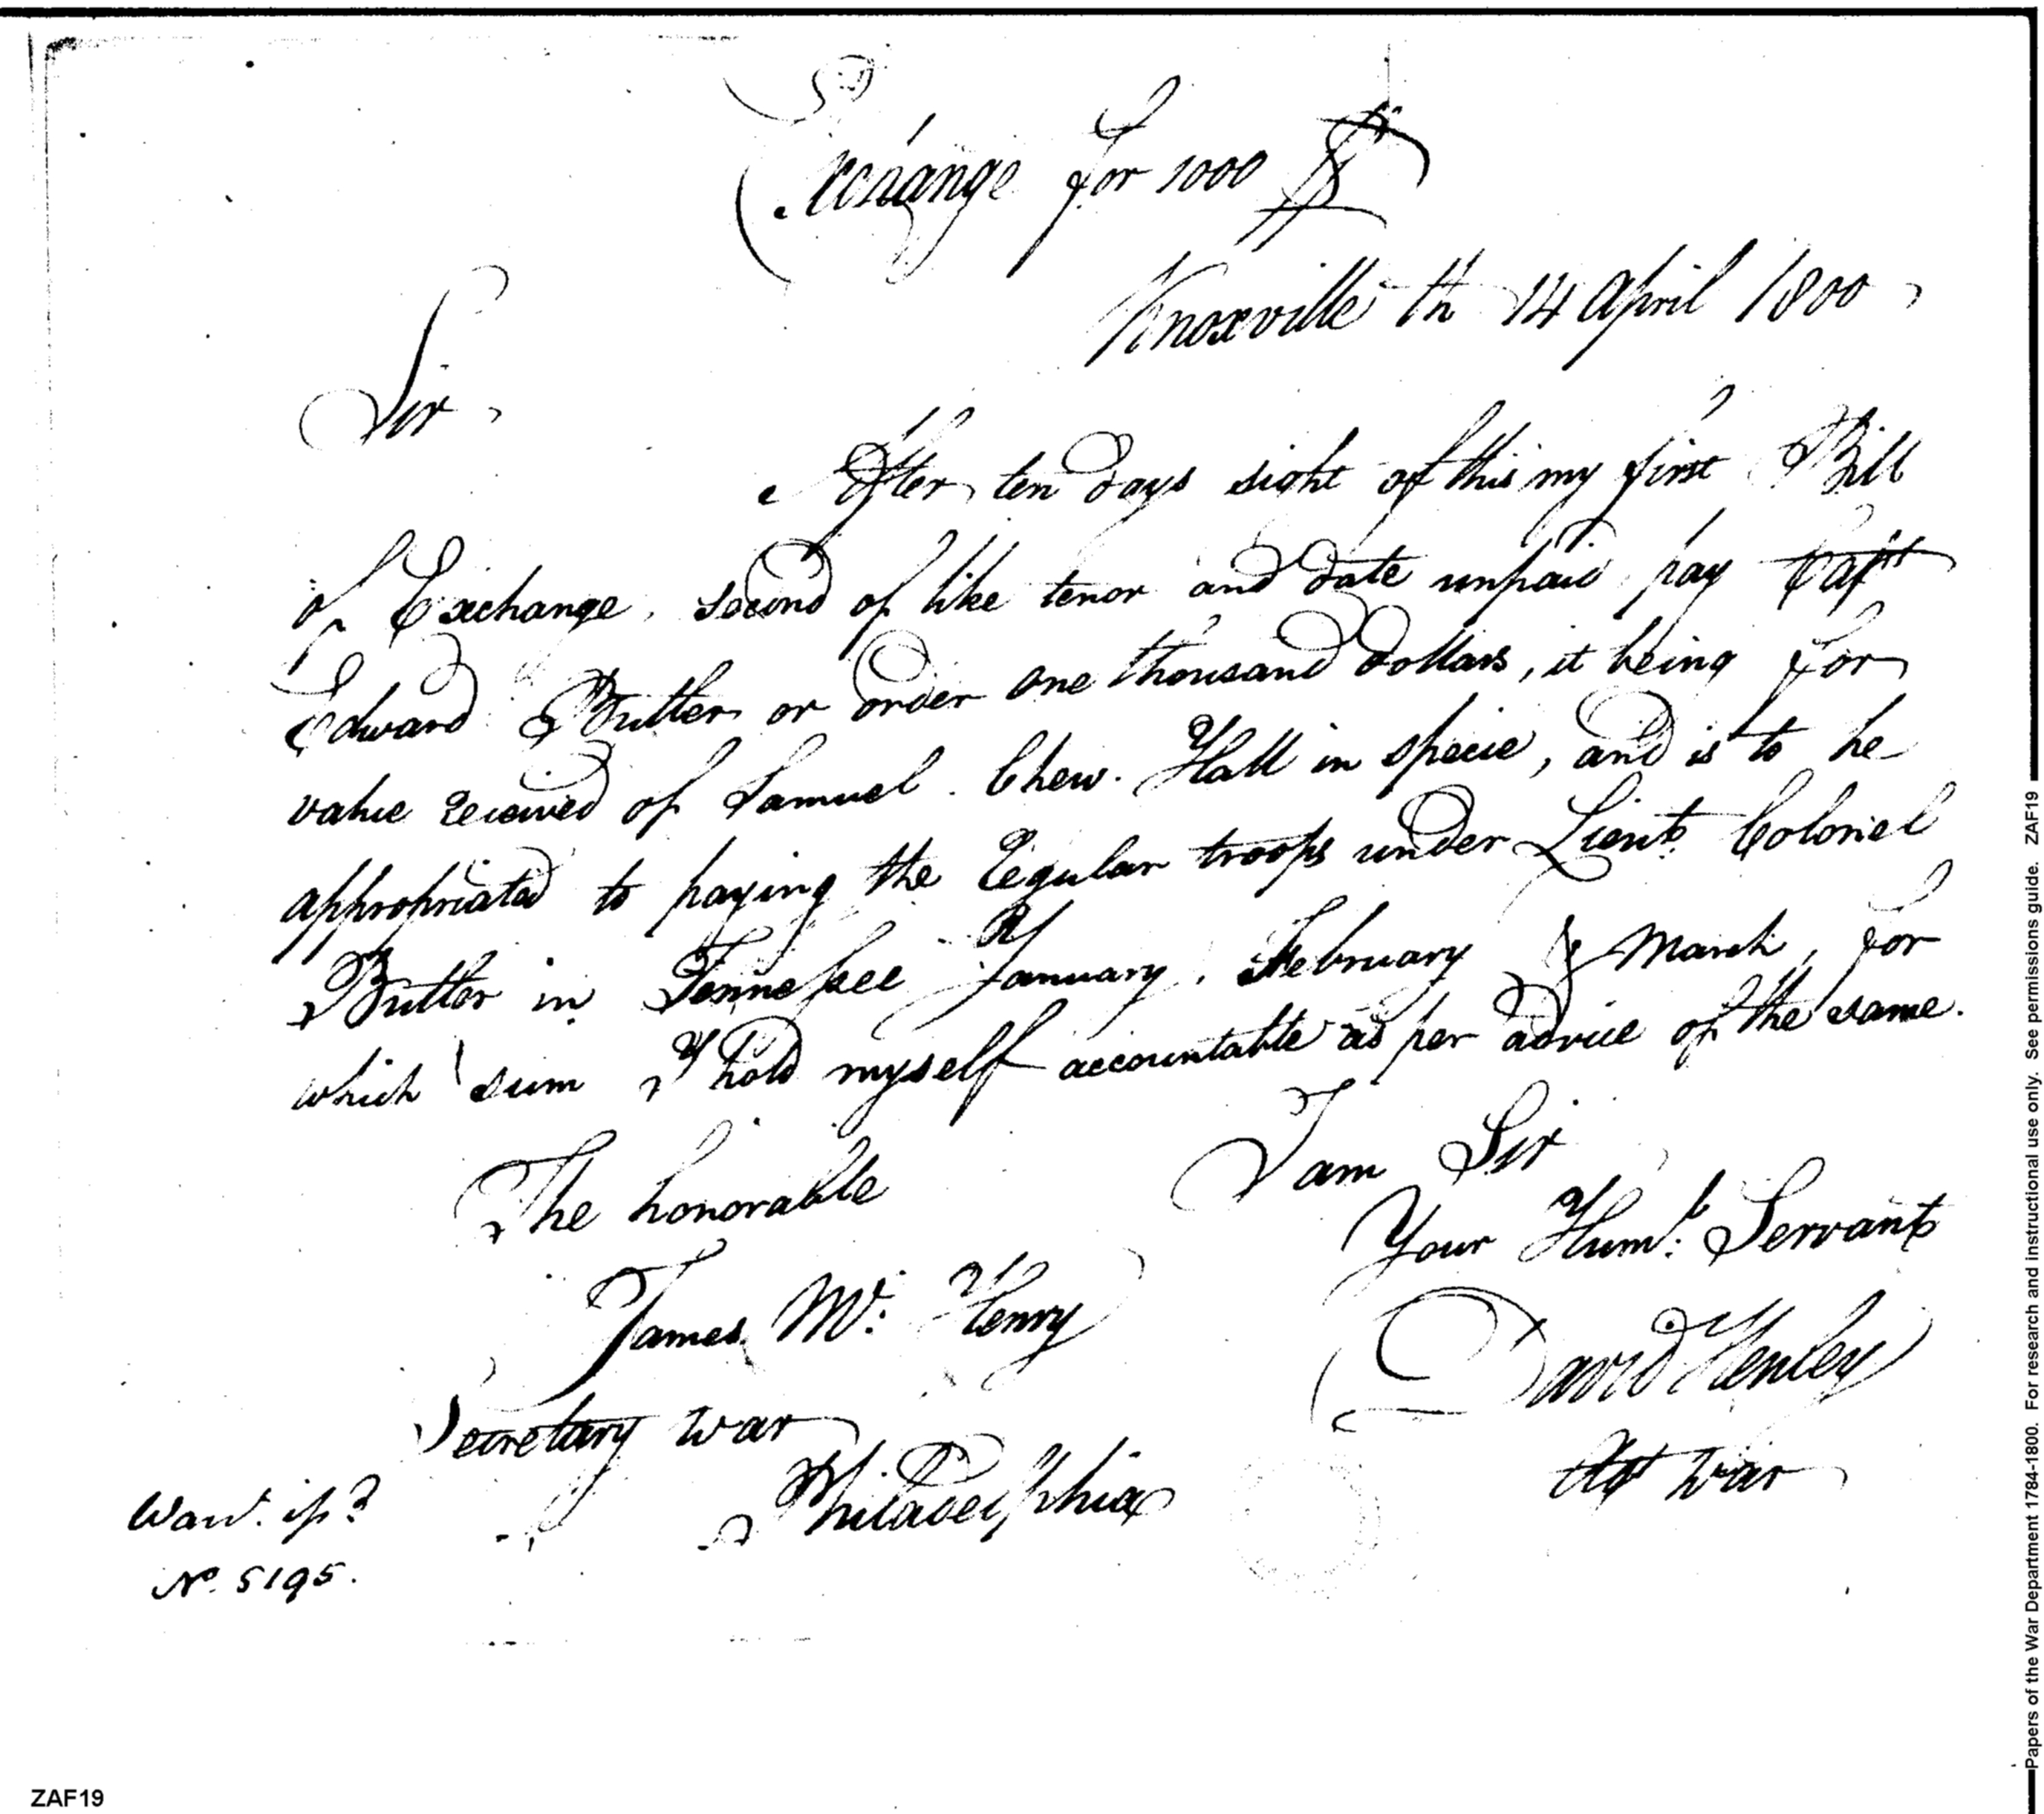 Exchange for 1000 $
Knoxville th 14 April 1800
Sir
After ten days sight of this my first Bill
of Exchange, second of like tenor and date unpaid pay Capt
Edward Butler or order one thousand dollars, it being for
value received of Samuel Chew. Hall in specie, and is to be
appropriated to paying the regular troops under Lieut. Colonel
Butler in Tennessee January, February & March, for
which sum I hold myself accountable as per advice of the same.
I am Sir
Your Huml. Servant
David Henley
Agt War
The honorable
James Mc. Henry
Secretary war
Philadelphia
Warrt. issd.
No. 5195.
ZAF19
Papers of the War Department 1784-1800. For research and instructional use only. See permissions guide. ZAF19